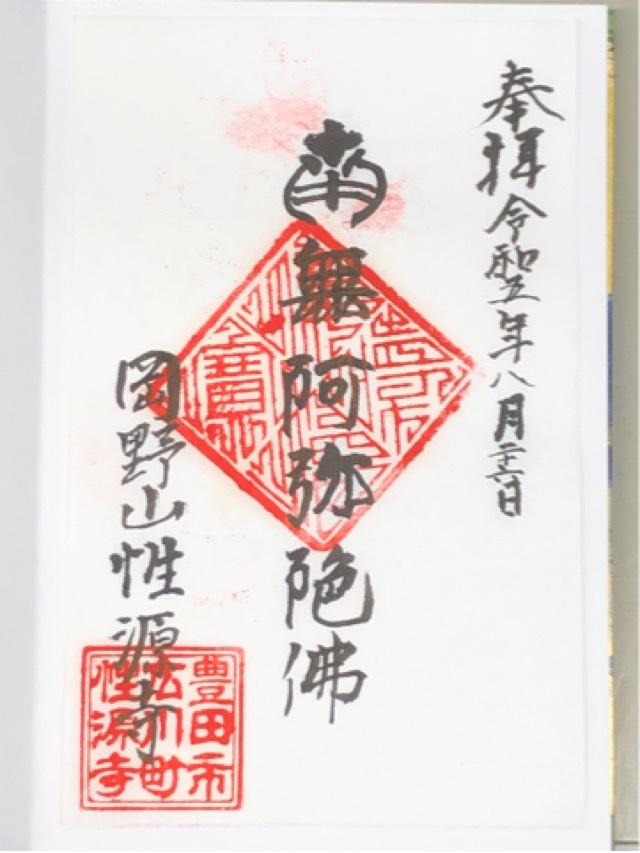 奉拝令和五年八月日
南無阿弥陀佛
岡野山性源寺
豊田市
町
性源寺